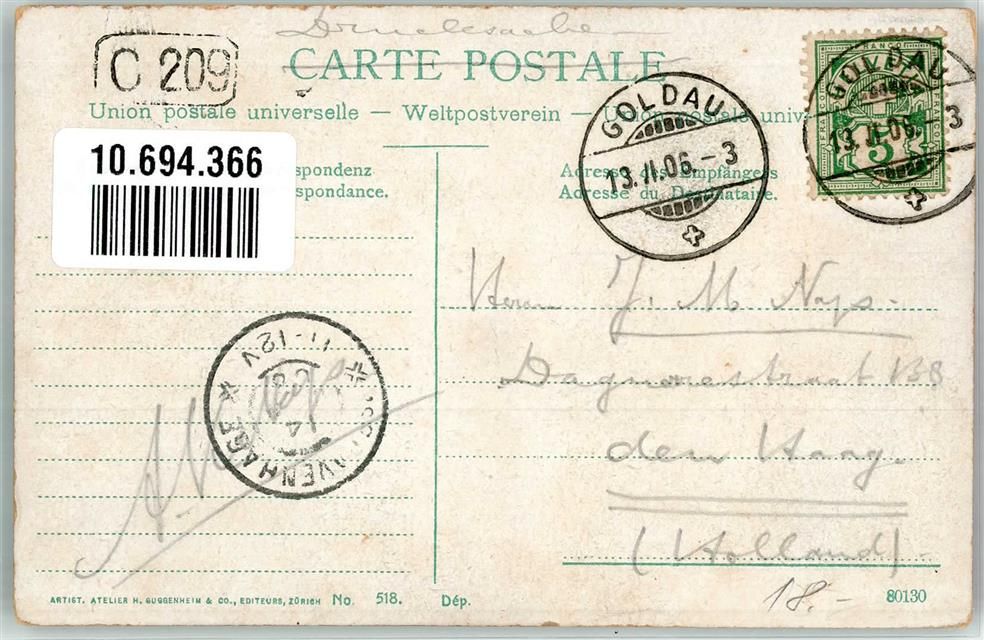 Drucksache
C 209
CARTE POSTALE
Union postale universelle — Weltpostverein — Union postale univ
10.694.366
spondenz
spondance.
Adresse des Empfängers
Adresse du Destinataire.
GOLDAU
13.II.06.-3
FRANCO
5
GOLDAU
13.II.06.-3
Herrn J. M. Nops.
straat 138
den Haag.
(Holland)
11-12V
14
'SGRAVENHAGE
ARTIST. ATELIER H. GUGGENHEIM & CO., EDITEURS, ZÜRICH No. 518. Dép.
18.-
80130